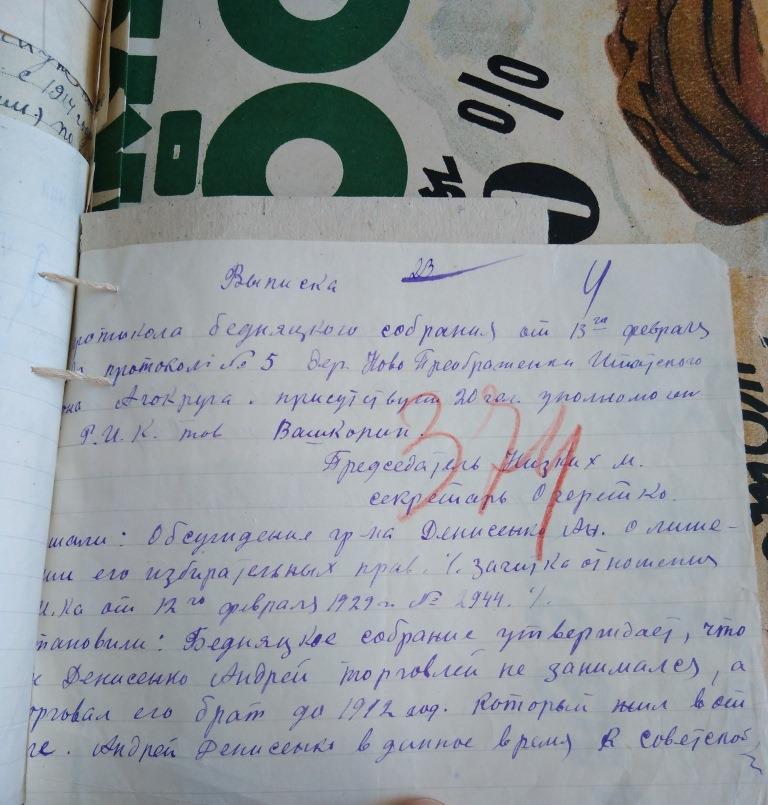 с 1914
%
Выписка 23 4
ротокола бедняцкого собрания от 13го февраля
протокол № 5 дер. Ново Преображенки Итатского
на Ачокруга. присутствует 20 чел. уполномочен
Р.И.К. тов Вашкорин.
374
Председатель Низких М.
секретарь Очеретко.
шали: Обсуждение гр-на Денисенко Ан. о лише-
нии его избирательных прав. %. зачитка отношения
И.Ка от 12го февраля 1929 г. № 2944. %.
тановили: Бедняцкое собрание утверждает, что
к Денисенко Андрей торговлей не занимался, а
орговал его брат до 1912 год. который жил в от
ге. Андрей Денисенко в данное время к советской